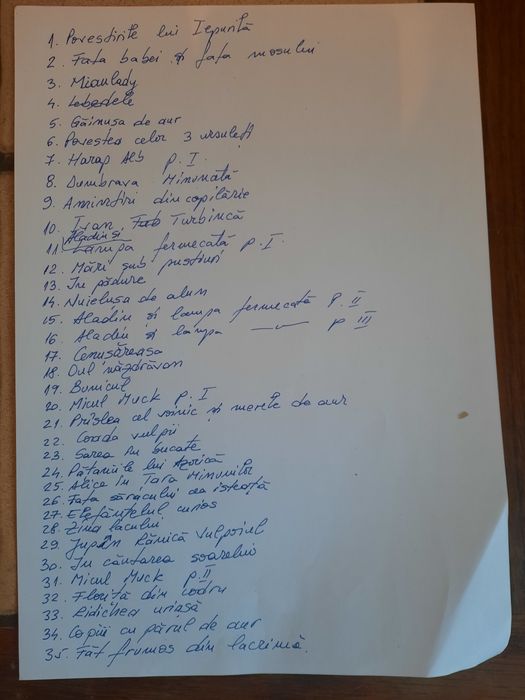 1. Povestirile lui Iepurilă
2. Fata babei și fata moșului
3. Mianlady
4. Lebedele
5. Găinușa de aur
6. Povestea celor 3 ursuleți
7. Harap Alb p. I.
8. Dumbrava Minunată
9. Amintiri din copilărie
10. Ivan Turbincă
11. Aladin și Lampa fermecată p. I.
12. Mări sub pustiuri
13. În pădure
14. Nuielușa de alun
15. Aladin și lampa fermecată P. II
16. Aladin și lampa —〃— p III
17. Cenușăreasa
18. Oul năzdrăvan
19. Bunicul
20. Micul Muck p. I
21. Prîslea cel voinic și merele de aur
22. Coada vulpii
23. Sarea în bucate
24. Pățaniile lui Aurică
25. Alice în Țara Minunilor
26. Fata săracului cea isteață
27. Elefănțelul curios
28. Zîna lacului
29. Jupîn Rănică Vulpoiul
30. În căutarea soarelui
31. Micul Muck p. II
32. Floriță din codru
33. Ridichea uriașă
34. Copiii cu părul de aur
35. Făt frumos din lacrimă.